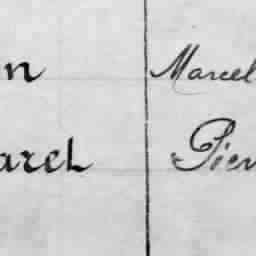 n Marcel
arel Pier